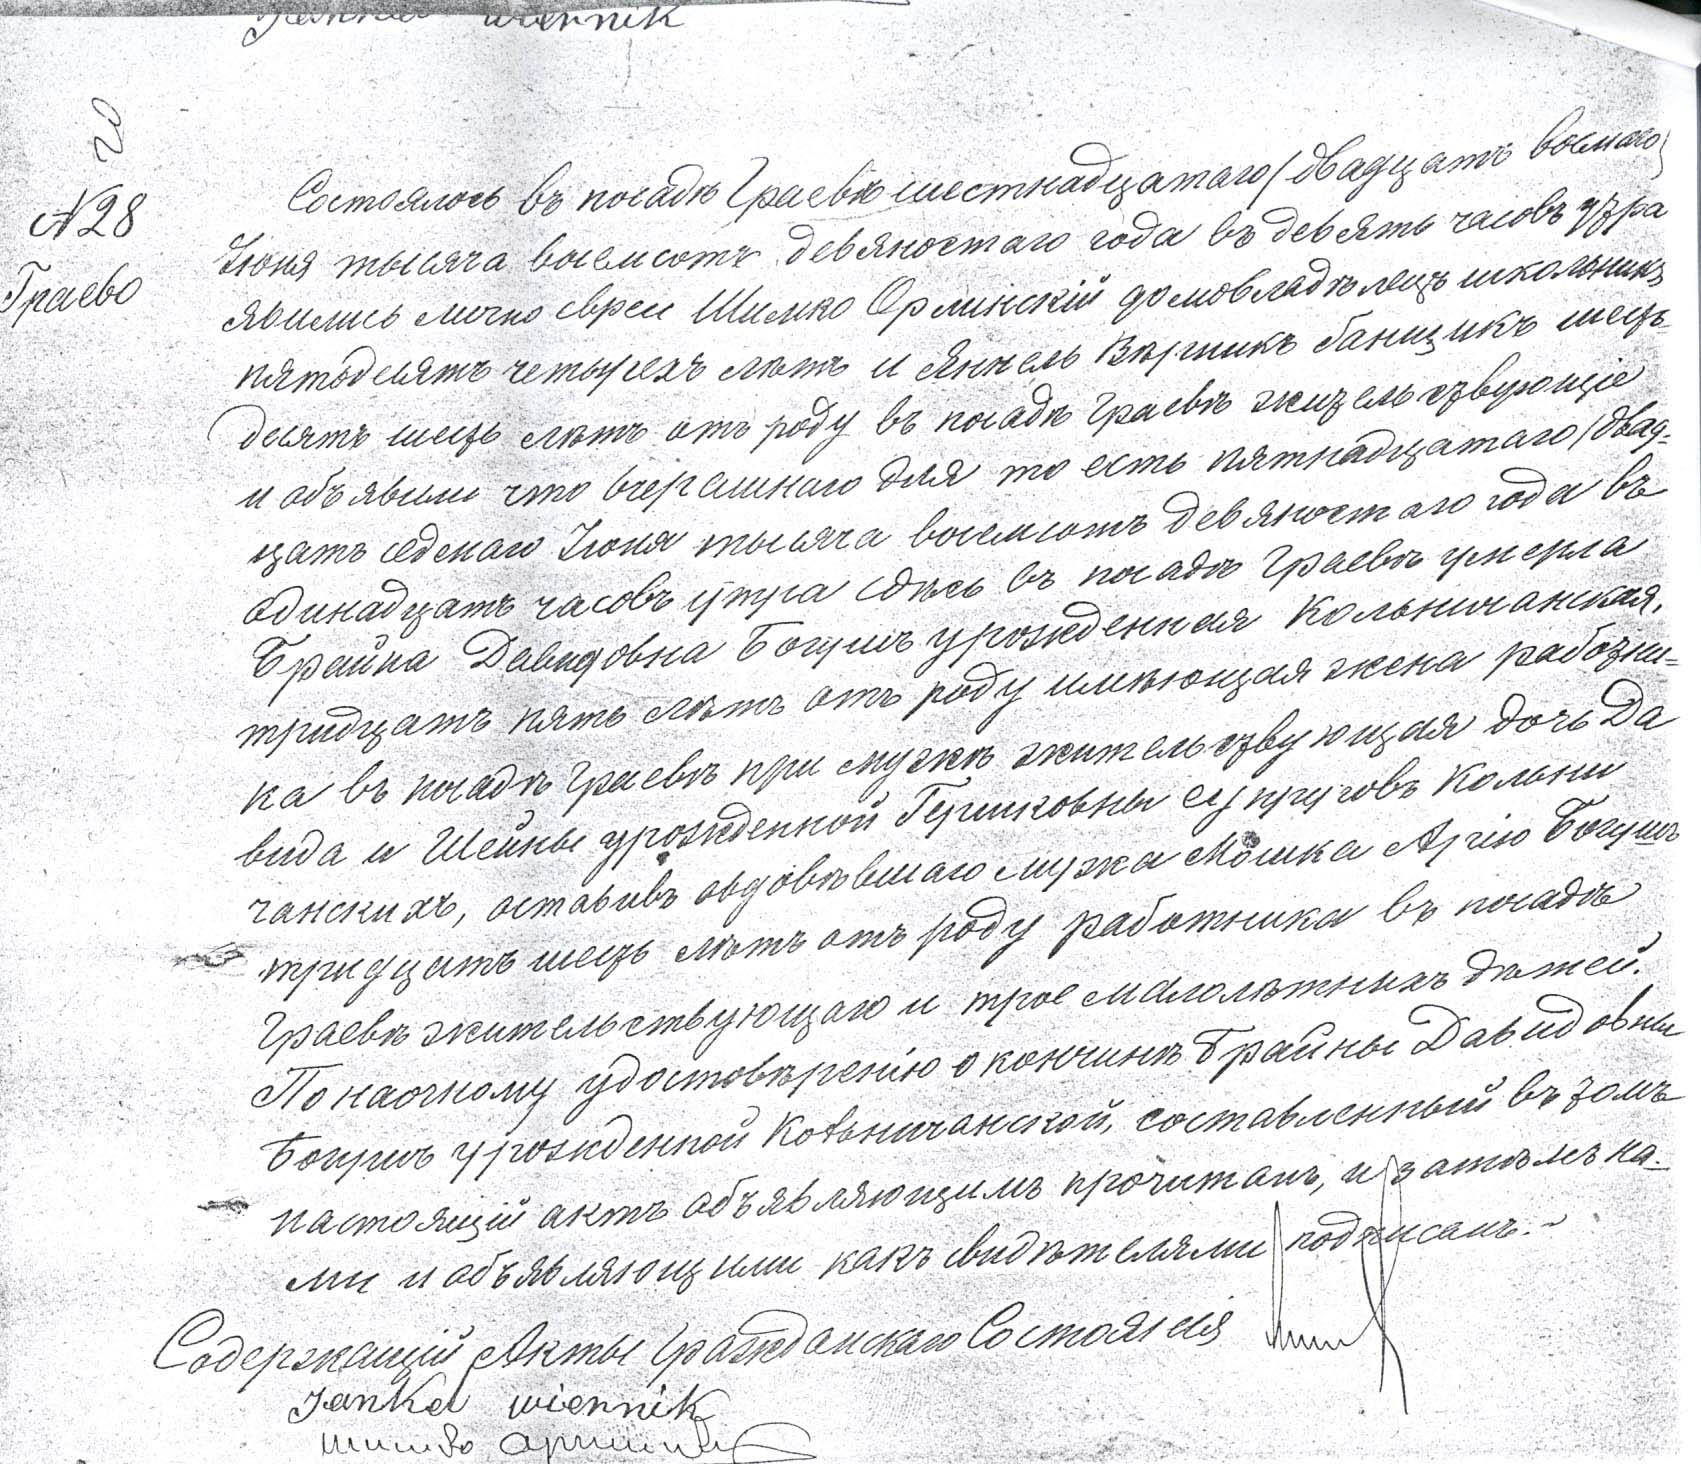 Jankel wiernik
20
№28
Граево
Состоялось въ посадѣ Граевѣ шестнадцатаго (двадцать восмаго)
Іюня тысяча восемсотъ девяностаго года въ девять часовъ утра
явились лично евреи Шимко Орлинскій домовладѣлецъ школьникъ
пятьдесятъ четырехъ лѣтъ и Янкель Вѣрникъ банщикъ шесть-
десятъ шесть лѣтъ отъ роду въ посадѣ Граевѣ жительствующіе
и объявили что вчерашнаго дня то есть пятнадцатаго (двад-
цать седмаго Іюня тысяча восемсотъ девяностаго года въ
одинадцать часовъ утра сдѣсь въ посадѣ Граевѣ умерла
Брайна Давидовна Богушъ урожденная Кольничанская,
тридцать пять лѣтъ отъ роду имѣющая жена работни-
ка въ посадѣ Граевѣ при мужѣ жительствующая дочь Да
вида и Шейны урожденной Гершковны супруговъ Кольни
чанскихъ, оставивъ овдовѣвшаго мужа Мошка Арію Богушъ
тридцать шесть лѣтъ отъ роду работника въ посадѣ
Граевѣ жительствующаго и трое малолѣтныхъ дѣтей.
По наочному удостовѣренію о кончинѣ Брайны Давидовны
Богушъ урожденной Кольничанской, составленный въ томъ
настоящій актъ объявляющимъ прочитанъ, и затѣмъ на-
ми и объявляющими какъ свидѣтелями подписанъ.~
Содержащій Акты Гражданскаго Состоянія
Jankel wiernik